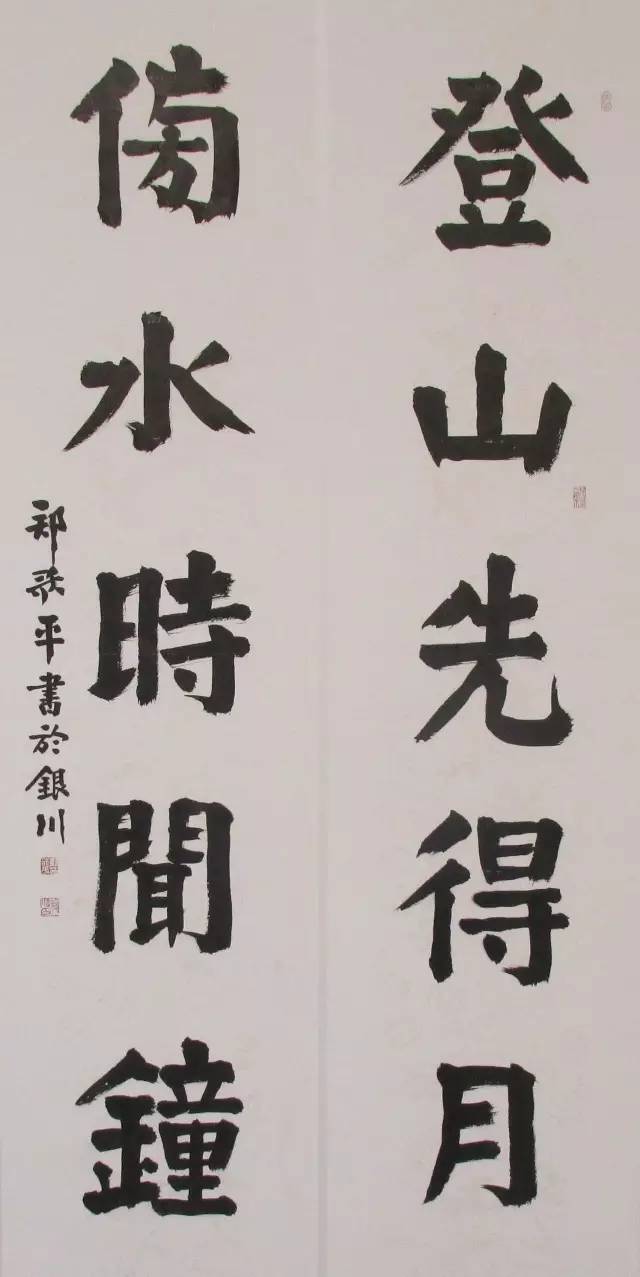 登山先得月
傍水時聞鐘
郑歌平書於銀川